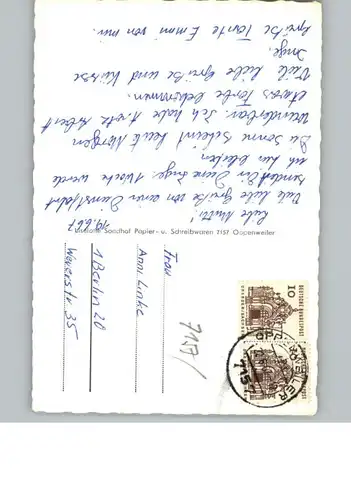 19.6.67
Liebe Mutti!
Viele liebe Grüße von einer Dienstfahrt
sendet Dir Deine Inge. 1 Woche werde
ich hier bleiben.
Die Sonne scheint heute Morgen
wunderbar. Ich habe trotz Arbeit
etwas Farbe bekommen.
Viele liebe Grüße und Küsse
Inge.
Grüße Tante Emmi von mir.
Liselotte Sandhof Papier- u. Schreibwaren 7157 Oppenweiler
Frau
Anni Linke
1 Berlin 20
Weverstr 35
7157/
10
DEUTSCHE BUNDESPOST